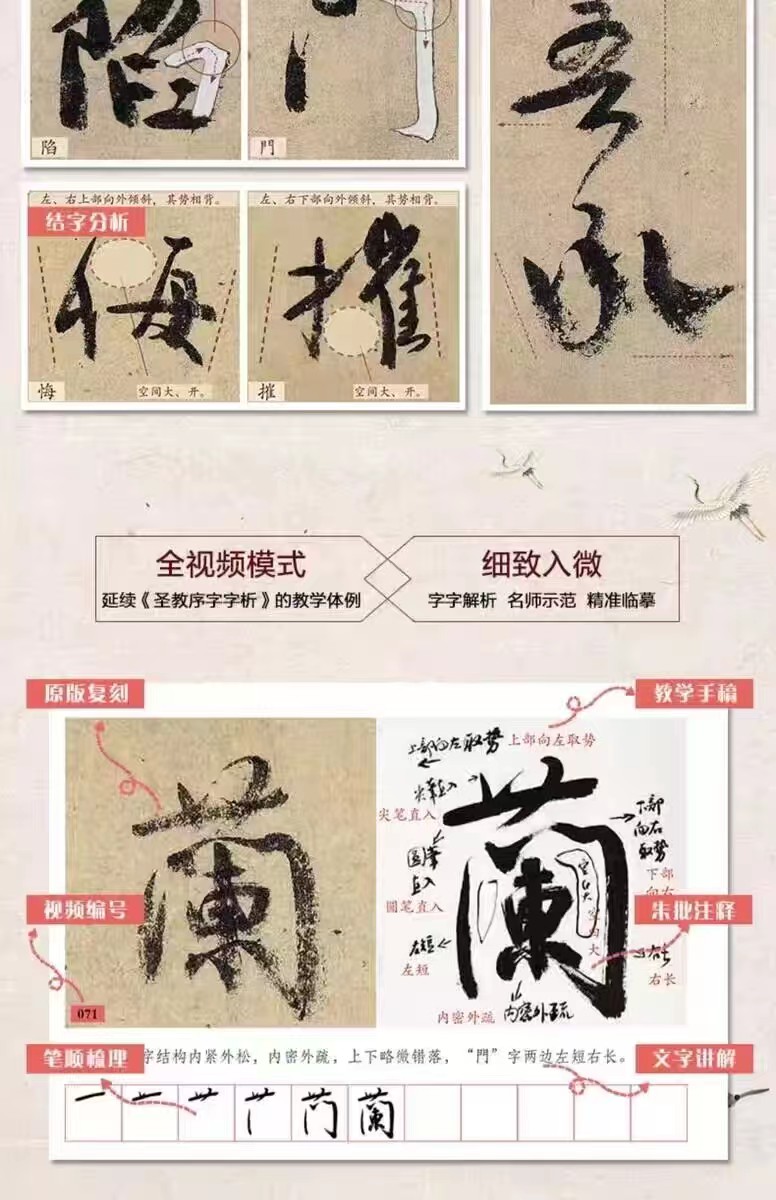 陷
門
左、右上部向外倾斜，其势相背。
结字分析
悔
空间大、开。
左、右下部向外倾斜，其势相背。
摧
空间大、开。
全视频模式
延续《圣教序字字析》的教学体例
细致入微
字字解析 名师示范 精准临摹
原版复刻
教学手稿
上部向左取势
上部向左取势
尖笔直入
尖笔直入
下部向右取势
圆笔直入
圆笔直入
下部向右
空间大
空间大
视频编号
朱批注释
左短
左短
右长
右长
071
内密外疏
内密外疏
蘭
蘭
笔顺梳理
字结构内紧外松，内密外疏，上下略微错落，“門”字两边左短右长。
文字讲解
蘭